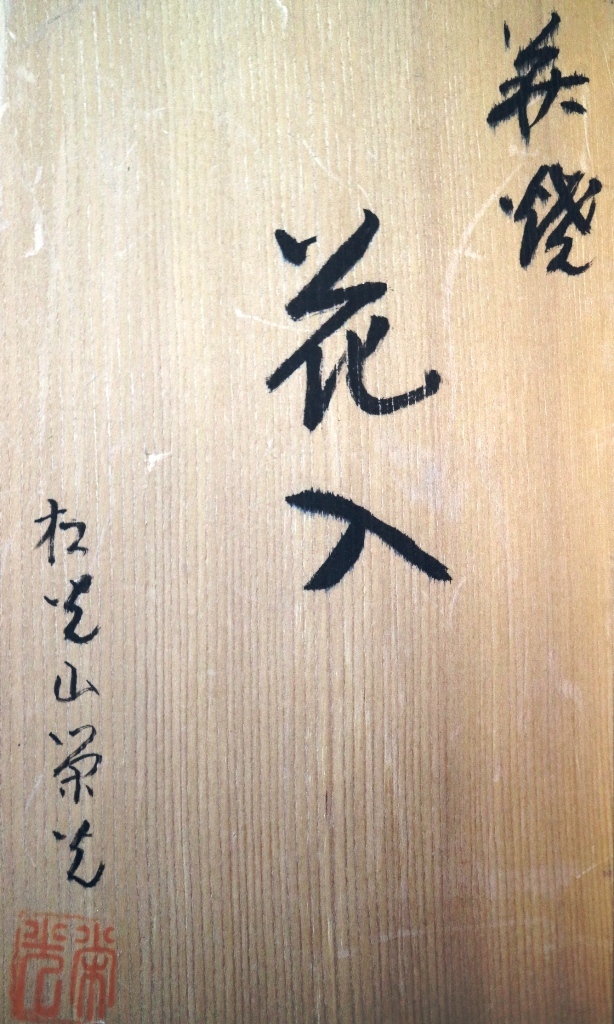 萩焼
花入
松光山栄光
栄光